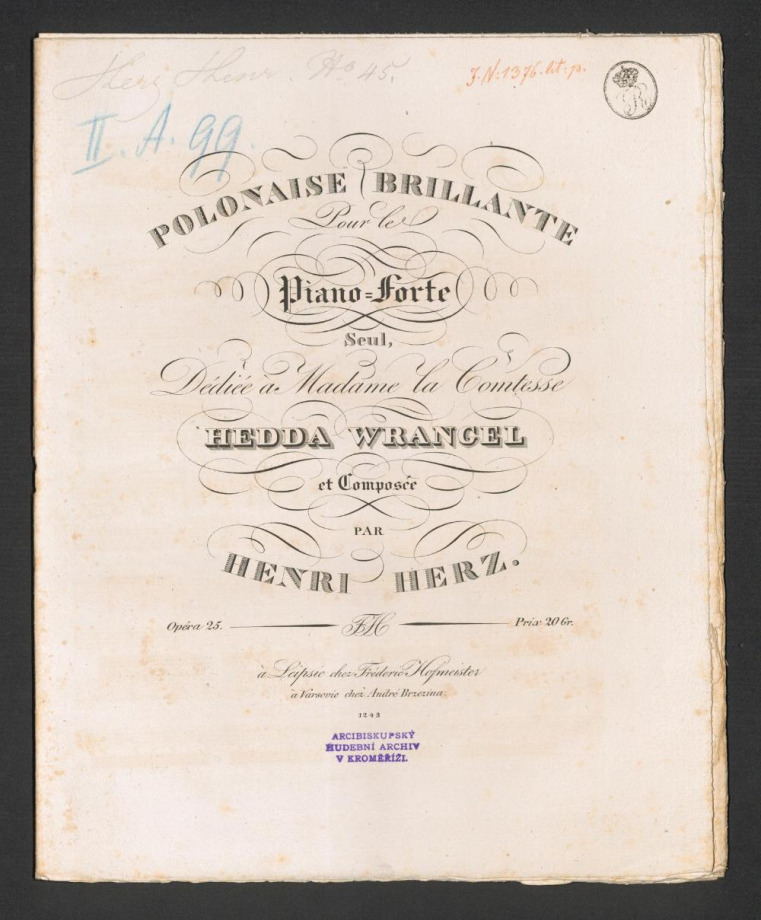 Herz Henr. No 45.
J.N. 1376. lit. p.
II. A. 99.
POLONAISE BRILLANTE
Pour le
Piano=Forte
Seul,
Dédiée a Madame la Comtesse
HEDDA WRANGEL
et Composée
PAR
HENRI HERZ.
Opéra 25. FH Prix 20 Gr.
à Leipsic chez Fréderic Hofmeister
à Varsovie chez André Brzezina.
1248
ARCIBISKUPSKÝ
HUDEBNÍ ARCHIV
V KROMĚŘÍŽI.